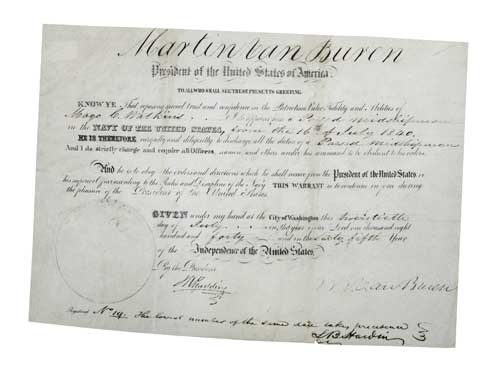 Martin Van Buren
President of the United States of America.
TO ALL WHO SHALL SEE THESE PRESENTS GREETING.
KNOW YE, That reposing special trust and confidence in the Patriotism Valor Fidelity and Abilities of
C. Watkins I appoint a Passed Midshipman
in the NAVY OF THE UNITED STATES, from the 16th of July 1840.
HE IS THEREFORE, carefully and diligently to discharge all the duties of a Passed Midshipman
And I do strictly charge and require all Officers, seamen and others under his command to be obedient to his orders.
And he is to obey the orders and directions which he shall receive from the PRESIDENT of the United States,
his superior set over him according to the Rules and Discipline of the Navy. THIS WARRANT is to continue in force during
the pleasure of the President of the United States.
GIVEN under my hand at the City of Washington this twentieth
day of July in the year of our Lord one thousand eight
hundred and forty and in the sixty fifth Year
of the Independence of the United States.
By the President
M Van Buren
JK Paulding
Registered No 14 The lowest number of the same date takes precedence